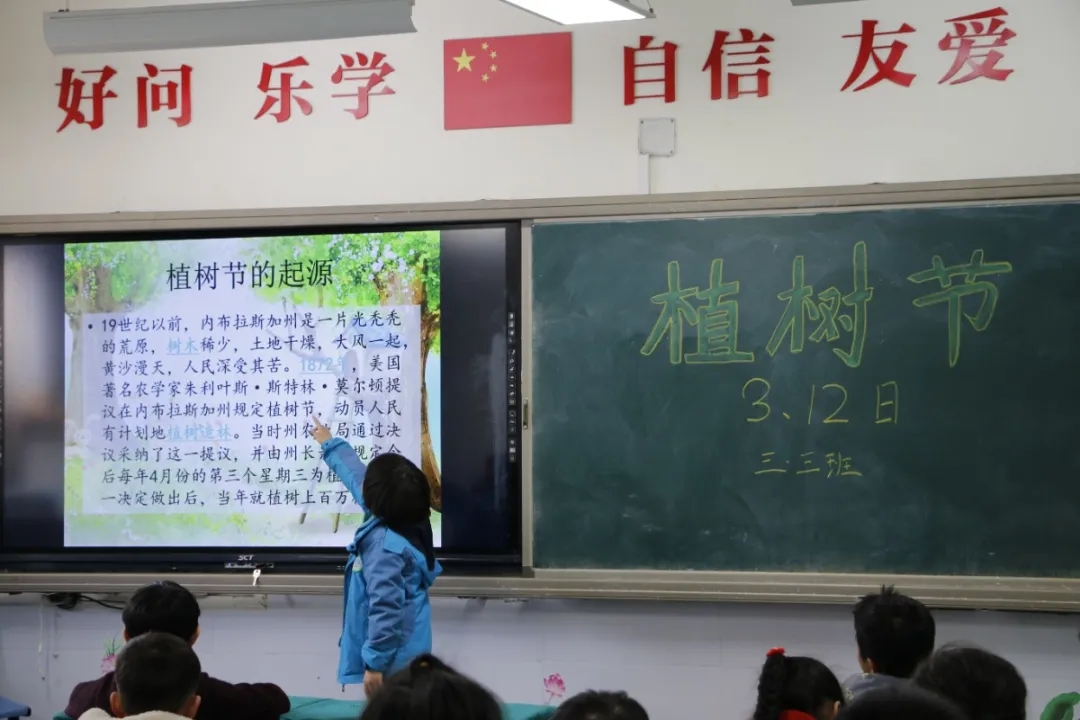 好问 乐学 自信 友爱
植树节的起源
• 19世纪以前，内布拉斯加州是一片光秃秃
的荒原，树木稀少，土地干燥，大风一起，
黄沙漫天，人民深受其苦。1872年，美国
著名农学家朱利叶斯·斯特林·莫尔顿提
议在内布拉斯加州规定植树节，动员人民
有计划地植树造林。当时州农 局通过决
议采纳了这一提议，并由州长 规定今
后每年4月份的第三个星期三为植
一决定做出后，当年就植树上百万
SCT
植树节
3、12日
三.三班